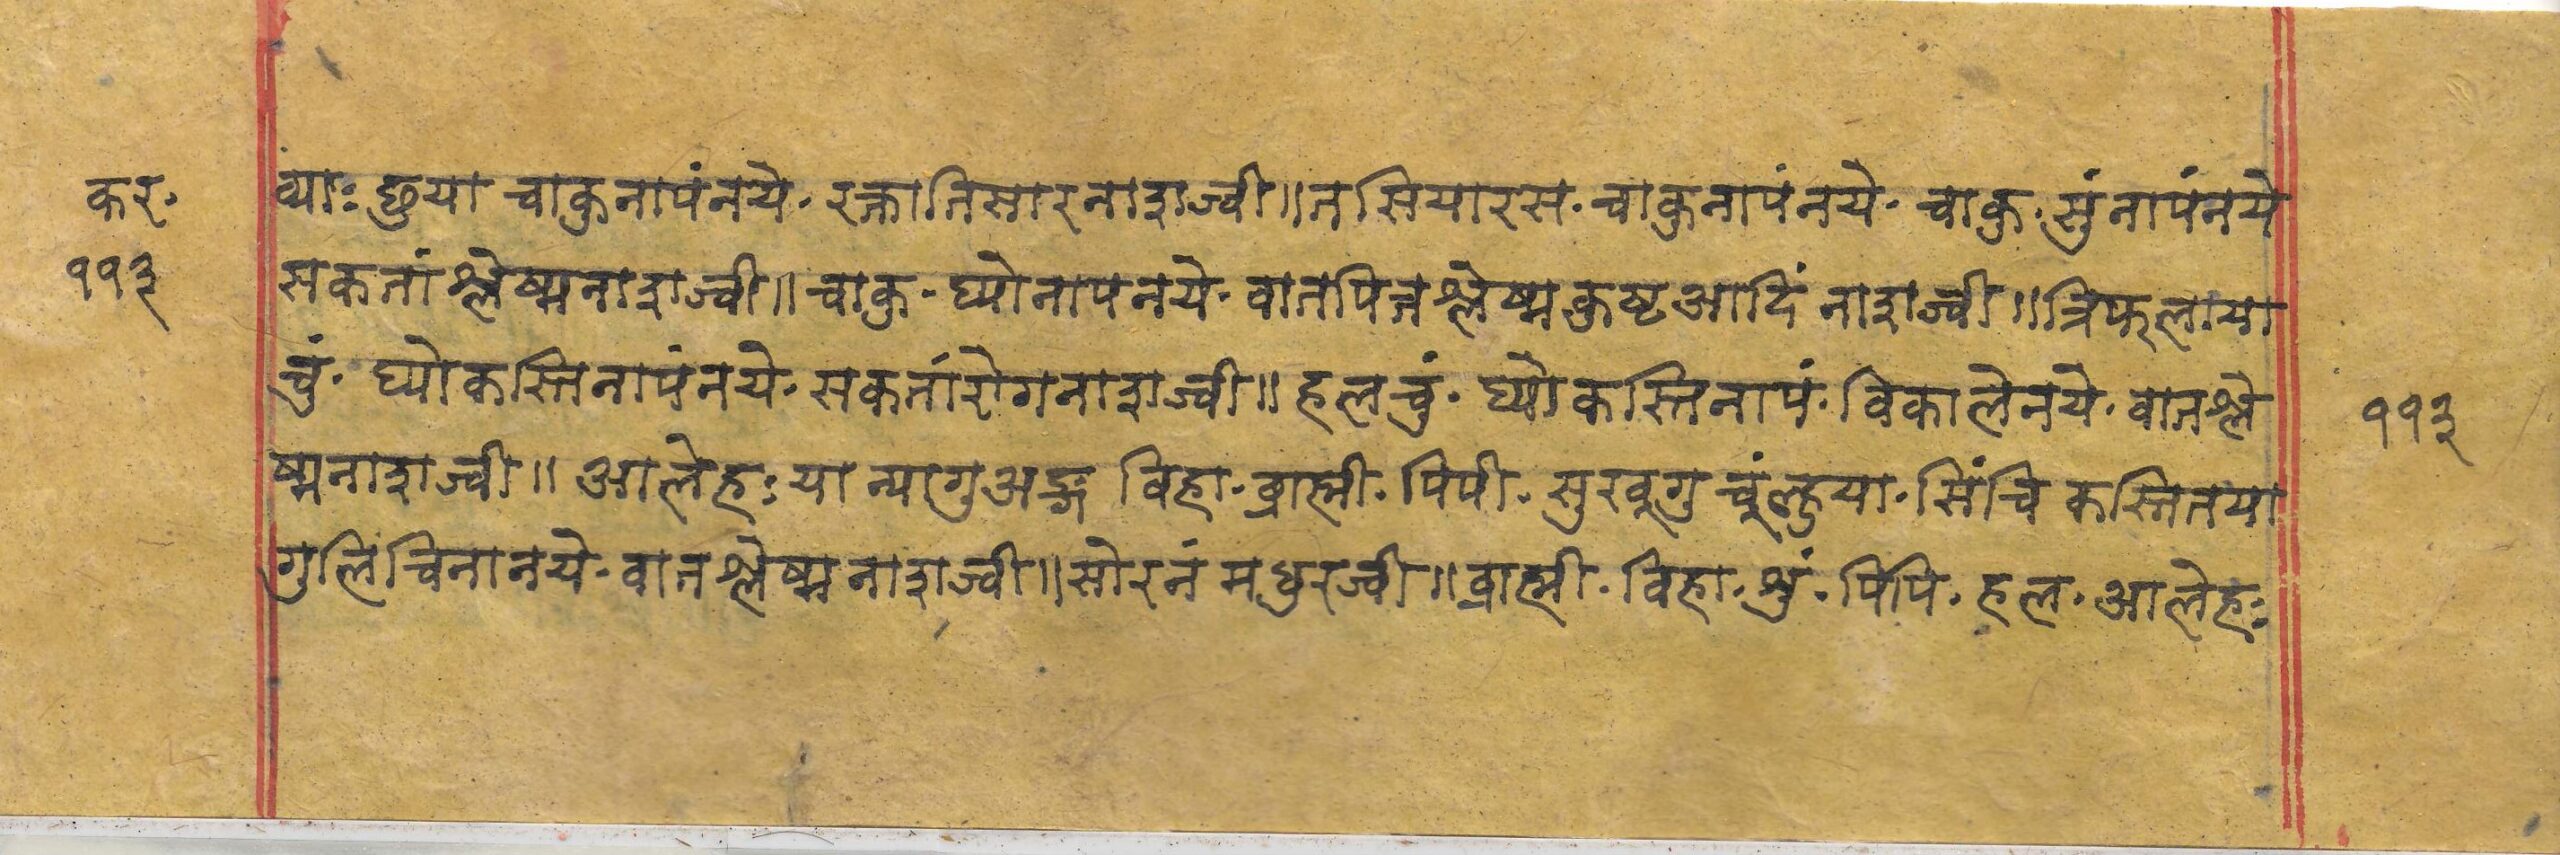 कर. व्याः छुया चाकुनापंनये. रक्तातिसारनाशज्वी॥तसियारस.चाकुनापंनये. चाकु.सुंनापंनये
११३ सकतां श्लेष्मनाशज्वी॥चाकु.घ्योनापनये.वातपित्तश्लेष्मकुष्टआदिं नाशज्वी॥त्रिफलाया
चुं. घ्योकस्तिनापंनये.सकतांरोगनाशज्वी॥हलचुं.घ्योकस्तिनापं.विकालेनये.वातश्ले ११३
ष्मनाशज्वी॥आलेहःया न्यागुअङ्ग विहा.ब्राह्मी.पिपी.सुखूगु चूंण्हुया.सिंचि कस्तितया
गुलिचिनानये.वातश्लेष्मनाशज्वी॥सोरनं मधुरज्वी॥ब्राह्मी.विहा.शुं.पिंपि.हल.आलेहः